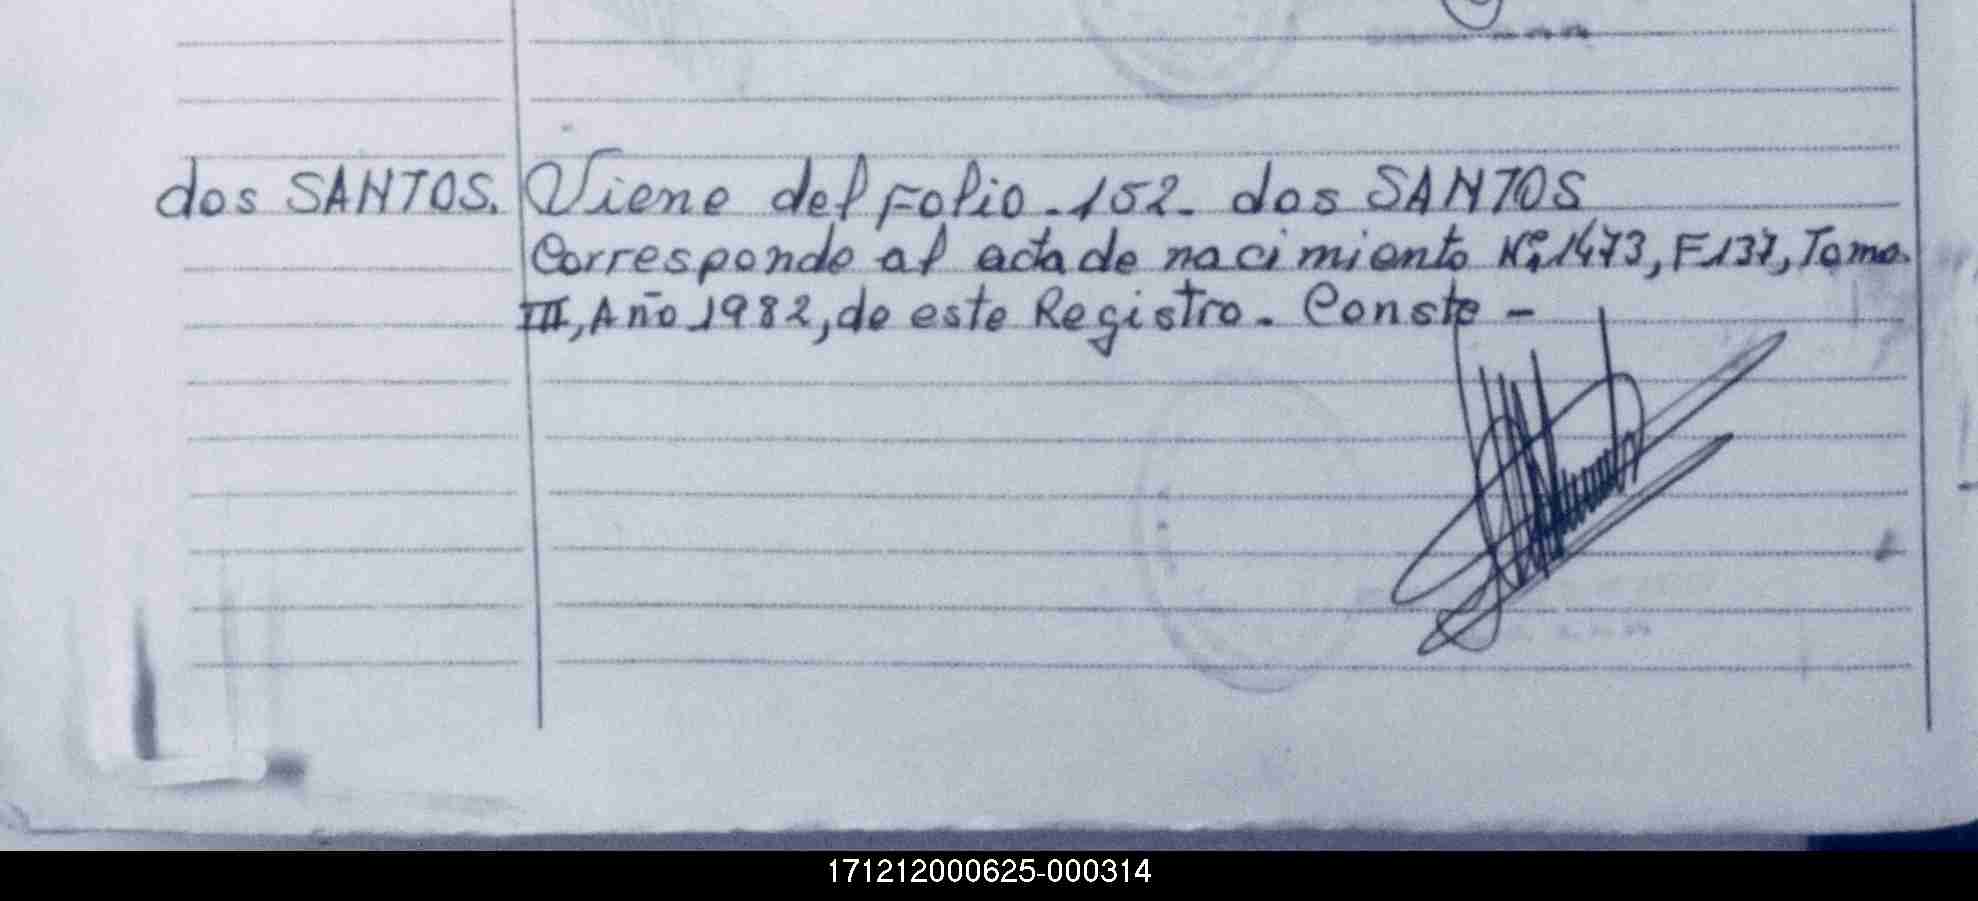 dos SANTOS. Viene del Folio - 152 - dos SANTOS
Corresponde al acta de nacimiento Nº 1473, F 137, Tomo.
III, Año 1982, de este Registro. Conste -
171212000625-000314